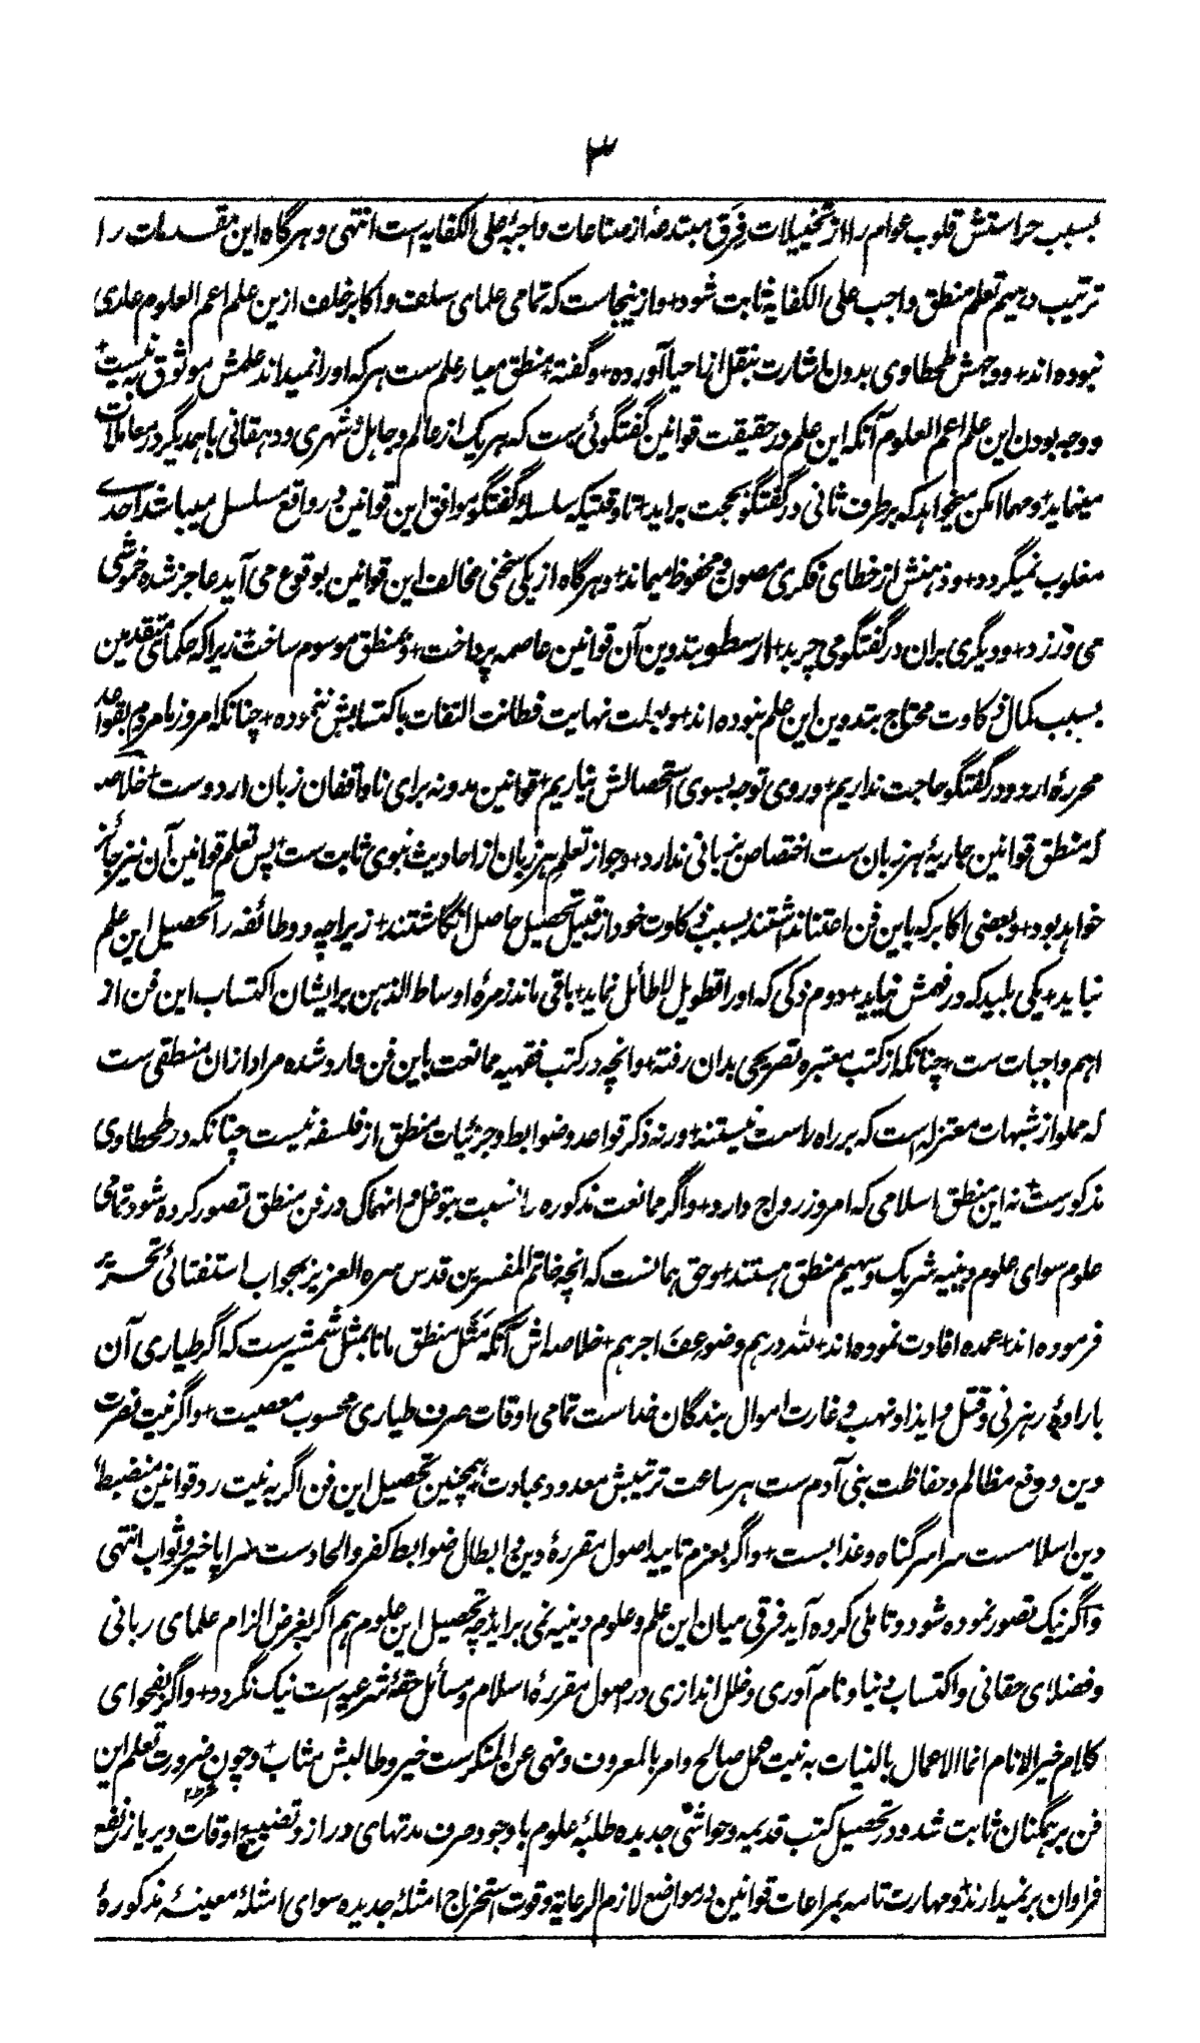 ۳
بسبب حراستش قلوب عوام را از تخییلات فِرَق مبتدعهٔ از صناعات واجبهٔ علی الکفایه است انتهی و هرگاه این مقدمات را
ترتیب دهیم تعلم منطق واجب علی الکفایة ثابت شود+ و ازینجاست که تمامی علمای سلف و اکابر خلف ازین علم اعم العلوم عاری
نبوده اند+ و وجهش طحطاوی بدول باشارت بنقل از احیا آورده+ و گفته+ منطق معیار علم ست هر که او را نمیداند علمش موثوق به نیست+
و وجه بودن این علم اعم العلوم آنکه این علم در حقیقت قوانین گفتگوئی ست که هر یک از عالم و جاهل و شهری و دهقانی باهمدیگر در معاملات
مینماید+ و مهما امکن میخواهد که بر طرف ثانی در گفتگو بحجت برآید+ تا وقتیکه سلسلهٔ گفتگو موافق این قوانین در واقع مسلسل میباشد احدی
مغلوب نمیگردد+ و ذهنش از خطای فکری مصون و محفوظ میماند+ و هرگاه از یکی سخنی مخالف این قوانین بوقوع می آید عاجز شده خموشی
می ورزد+ و دیگری بران در گفتگو می چربد+ ارسطو بتدوین آن قوانین عاصمه پرداخت+ و بمنطق موسوم ساخت+ زیرا که حکمای متقدمین
بسبب کمال ذکاوت محتاج بتدوین این علم نبوده اند+ و بعلت نهایت فطانت التفات باکتسابش ننموده+ چنانکه امروز ما مردم بقواعد
محررهٔ اردو در گفتگو حاجت نداریم+ و روی توجه بسوی استحصالش نیاریم+ قوانین مدونه برای ناواقفان زبان اردوست+ خلاصه
که منطق قوانین جاریهٔ هر زبان ست اختصاص بزبانی ندارد+ و جواز تعلم هر زبان از احادیث نبوی ثابت ست+ پس تعلم قوانین آن نیز جائز
خواهد بود+ و بعضی اکابر که باین فن اعتنا نداشتند بسبب ذکاوت خود از قبیل تحصیل حاصل انگاشتند+ زیرا چه دو طائفه را تحصیل این علم
نباید+ یکی بلید که در فهمش نیاید+ دوم ذکی که او را تطویل لاطائل نماید+ باقی ماند زمرهٔ اوساط الذهن برایشان اکتساب این فن از
اهم واجبات ست+ چنانکه از کتب معتبره تصریحی بدان رفته+ و انچه در کتب فقهیه ممانعت باین فن وارد شده مراد ازان منطقی ست
که مملو از شبهات معتزله است که بر راه راست نیستند+ و رنه ذکر قواعد و ضوابط و جزئیات منطق از فلسفه نیست چنانکه در طحطاوی
مذکورست+ نه این منطق اسلامی که امروز رواج دارد+ و اگر ممانعت مذکوره را نسبت بتوغل و انهماک در فن منطق تصور کرده شود تمامی
علوم سوای علوم دینیه شریک و سهیم منطق هستند+ و حق همانست که انچه خاتم المفسرین قدس سره العزیز بجواب استفتائی تحریر
فرموده اند+ عمده افادت نموده اند+ لله درهم و ضوعف اجرهم+ خلاصه اش آنکه مَثَل منطق مانا بمثل شمشیرست که اگر طیاری آن
بارادهٔ رهزنی و قتل و ایذا و نهب و غارت اموال بندگان خداست تمامی اوقات صرف طیاری محسوب معصیت+ و اگر نیت نصرت
دین و دفع مظالم و حفاظت بنی آدم ست هر ساعت ترتیبش معدود بعبادت+ همچنین تحصیل این فن اگر به نیت رد قوانین منضبطهٔ
دین اسلام ست سراسر گناه و عذابست+ و اگر بعزم تایید اصول مقررهٔ دین و ابطال ضوابط کفر و الحادست سراپا خیر و ثواب انتهی
و اگر نیک تصور نموده شود و تاملی کرده آید فرقی میان این علم و علوم دینیه نمی برآید+ چه تحصیل این علوم هم اگر بغرض الزام علمای ربانی
و فضلای حقانی و اکتساب دنیا و نام آوری و خلل اندازی در اصول مقررهٔ اسلام و مسائل حقهٔ شرعیه است نیک نگردد+ و اگر بفحوای
کلام خیر الانام انما الاعمال بالنیات به نیت عمل صالح و امر بالمعروف و نهی عن المنکرست خیر و طالبش مثاب+ و چون ضرورت تعلم این
فن بر همگنان ثابت شد و در تحصیل کتب قدیمه و حواشی جدیده طلبهٔ علوم با وجود صرف مدتهای دراز و تضییع اوقات دیر باز نفع
فراوان بر نمیدارند+ و مهارت تامه بمراعات قوانین در مواضع لازم الرعایة و قوت استخراج امثلهٔ جدیده سوای امثلهٔ معینهٔ مذکورهٔ